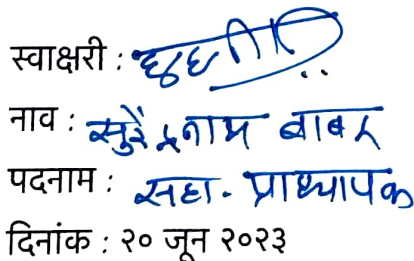 स्वाक्षरी :
नाव : सुरेंद्रनाथ बाबर
पदनाम : सहा. प्राध्यापक
दिनांक : २० जून २०२३